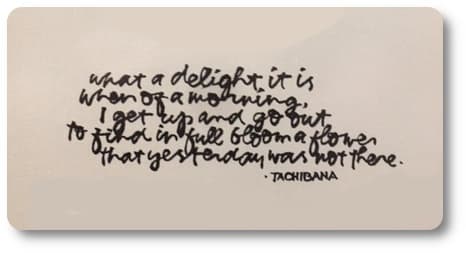 what a delight it is
when of a morning,
I get up and go out
to find in full bloom a flower
that yesterday was not there.
· TACHIBANA